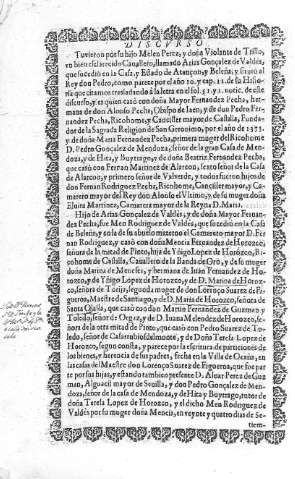 DISCVRSO
Tuvieron por su hijo Melen Perez, y doña Violante de Trillo,
un bien esclarecido Cavallero, llamado Arias Gonçalez de Valdés,
que sucedió en la Casa, y Estado de Atançon, y Beleña, y sirvió al
Rey don Pedro, como parece por el año 20. y cap. 11. de su Historia
que citamos trasladando à la letra en el fol. 31. y 21. notic. de este
discurso, y el quien casó con doña Mayor Fernandez Pecha, hermana
de don Alonso Pecha, Obispo de Iaen, y de don Pedro Fernandez
Pecha, Ricohome, y Canciller mayor de Castilla, Fundador
de la Sagrada Religion de San Geronimo, por el año de 1373.
y de doña Maria Fernandez Pecha, primera muger del Ricohome
D. Pedro Gonçalez de Mendoza, señor de la gran Casa de Mendoza,
y de Hita, y Buytrago, y de doña Beatriz Fernandez Pecha,
que casó con Fernan Martinez de Alarcon, sexto señor de la Casa
de Alarcon, y primero señor de Valverde, y todos fueron hijos de
don Fernan Rodriguez Pecha, Ricohome, Canciller mayor, y Camarero
mayor del Rey don Alonso el Vltimo, y de su muger doña
Elvira Martinez, Camarera mayor de la Reyna D. Maria.
Hijo de Arias Gonçalez de Valdés, y de doña Mayor Fernandez
Pecha, fue Men Rodriguez de Valdés, que sucedió en la Casa
de Beleña, y en la de su abuelo materno el Camarero mayor D. Fernan
Rodriguez, y casó con doña Mencia Fernandez de Horozco,
señora de la mitad de Pinto, hija de Yñigo Lopez de Horozco, Ricohome
de Castilla, Cavallero de la Banda de Oro, y de su muger
doña Marina de Meneses, y hermana de Iuan Fernandez de Horozco,
y de Yñigo Lopez de Horozco, y de D. Marina de Horozco,
señora de Torija, segunda muger de don Lorenço Suarez de Figueroa,
Maestre de Santiago, y de D. Maria de Horozco, señora de
Santa Olalla, que casó con don Martin Fernandez de Guzman y
Toledo, señor de Orgaz, y de D. Iuana Mendez de Horozco, señora
de la otra mitad de Pinto, que casó con Pedro Suarez de Toledo,
señor de Casarrubios del monte, y de doña Teresa Lopez de
Horozco, segun consta, y parece por la escritura de particiones de
los bienes, y herencia de sus padres, fecha en la Villa de Ocaña, en
las casas del Maestre don Lorenço Suarez de Figueroa, que fue parte
por sus hijas, y estando tambien presente D. Alvar Perez de Guzman,
Alguacil mayor de Sevilla, y don Pedro Gonçalez de Mendoza,
señor de la casa de Mendoza, y de Hita y Buytrago, tutor de
doña Teresa Lopez de Horozco, y el dicho Men Rodriguez de
Valdés por su muger doña Mencia, en veynte y quatro dias de Setiem-